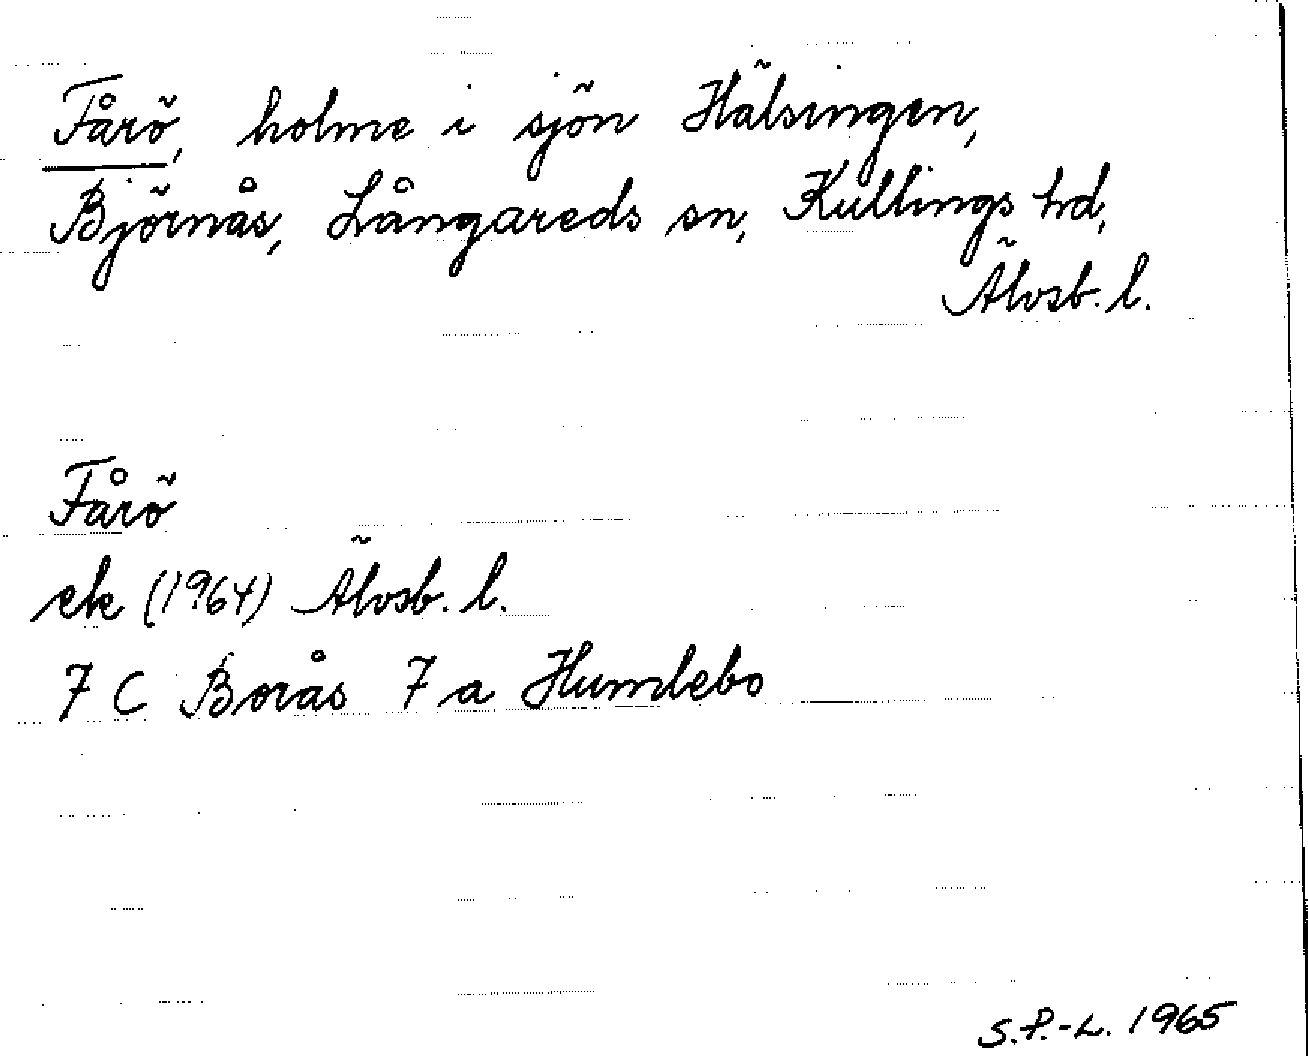 Fårö, holme i sjön Hälsingen,
Björnås, Långareds sn, Kullings hd,
Älvsb. l.
Fårö
ek (1964) Älvsb. l.
7 C Borås 7 a Humlebo
S.P.-L. 1965